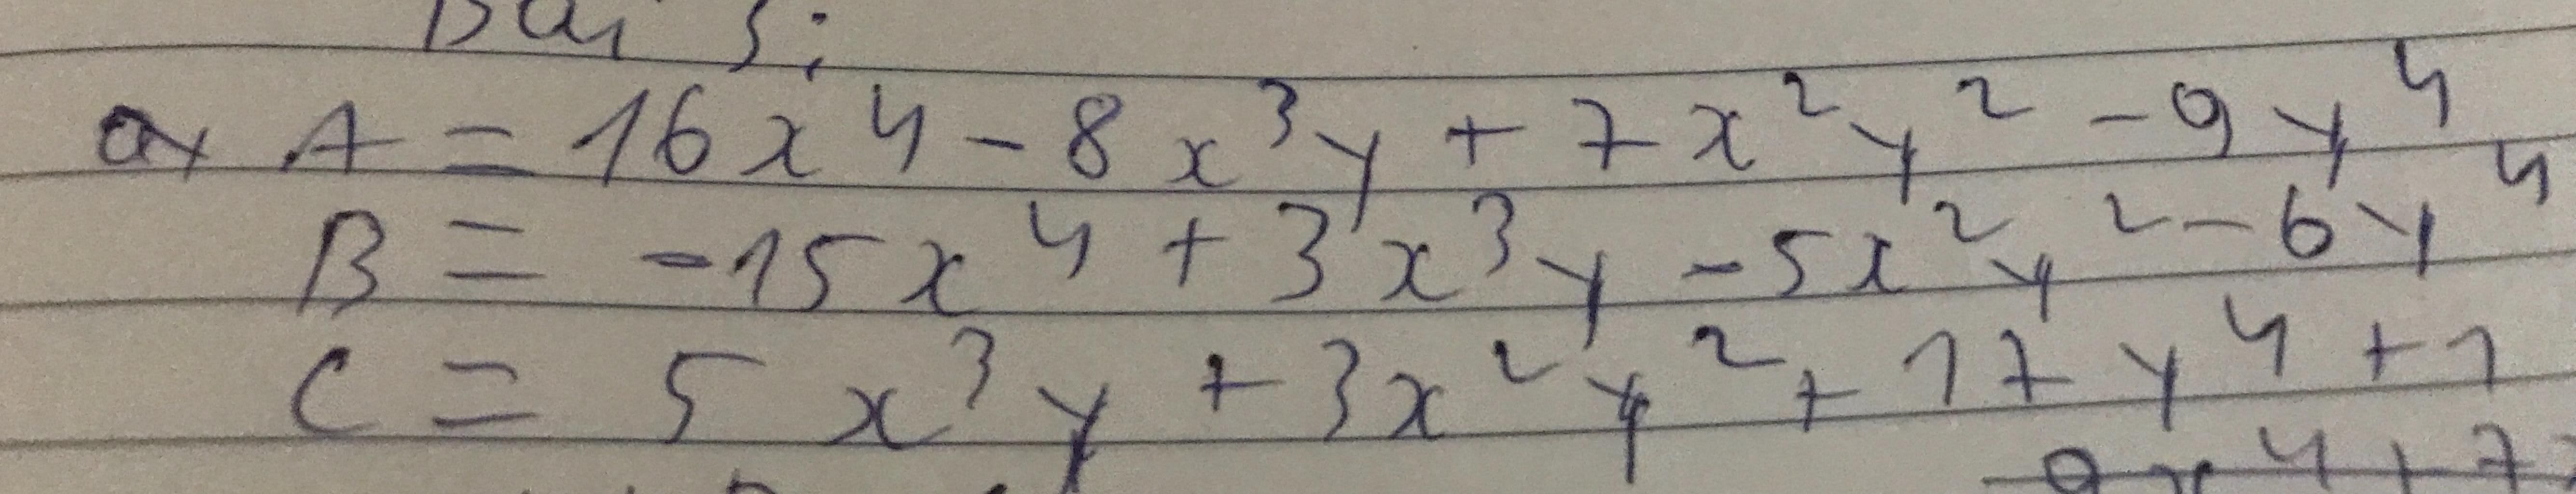 Bài 3:
a, A = 16x⁴ - 8x³y + 7x²y² - 9y⁴
B = -15x⁴ + 3x³y - 5x²y² - 6y⁴
C = 5x³y + 3x²y² + 17y⁴ + 1